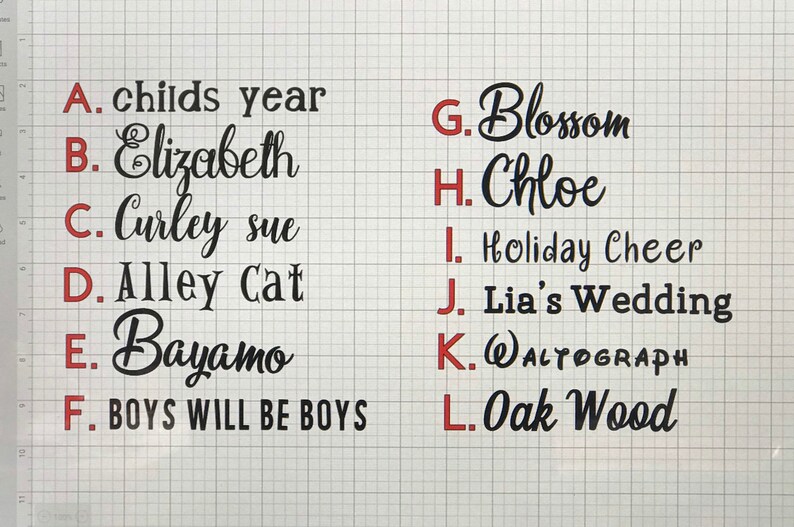 A. childs year
B. Elizabeth
C. Curley sue
D. Alley Cat
E. Bayamo
F. BOYS WILL BE BOYS
G. Blossom
H. Chloe
I. Holiday Cheer
J. Lia's Wedding
K. WALTOGRAPH
L. Oak Wood
1
2
3
4
5
6
7
8
9
10
11